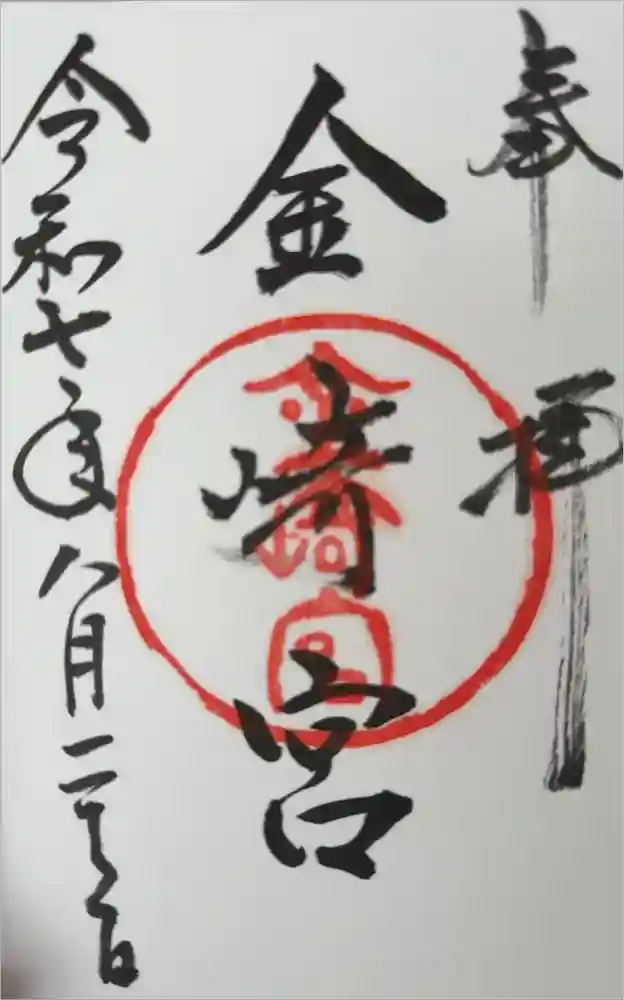 奉拝
金崎宮
金崎宮
令和七年八月二十七日